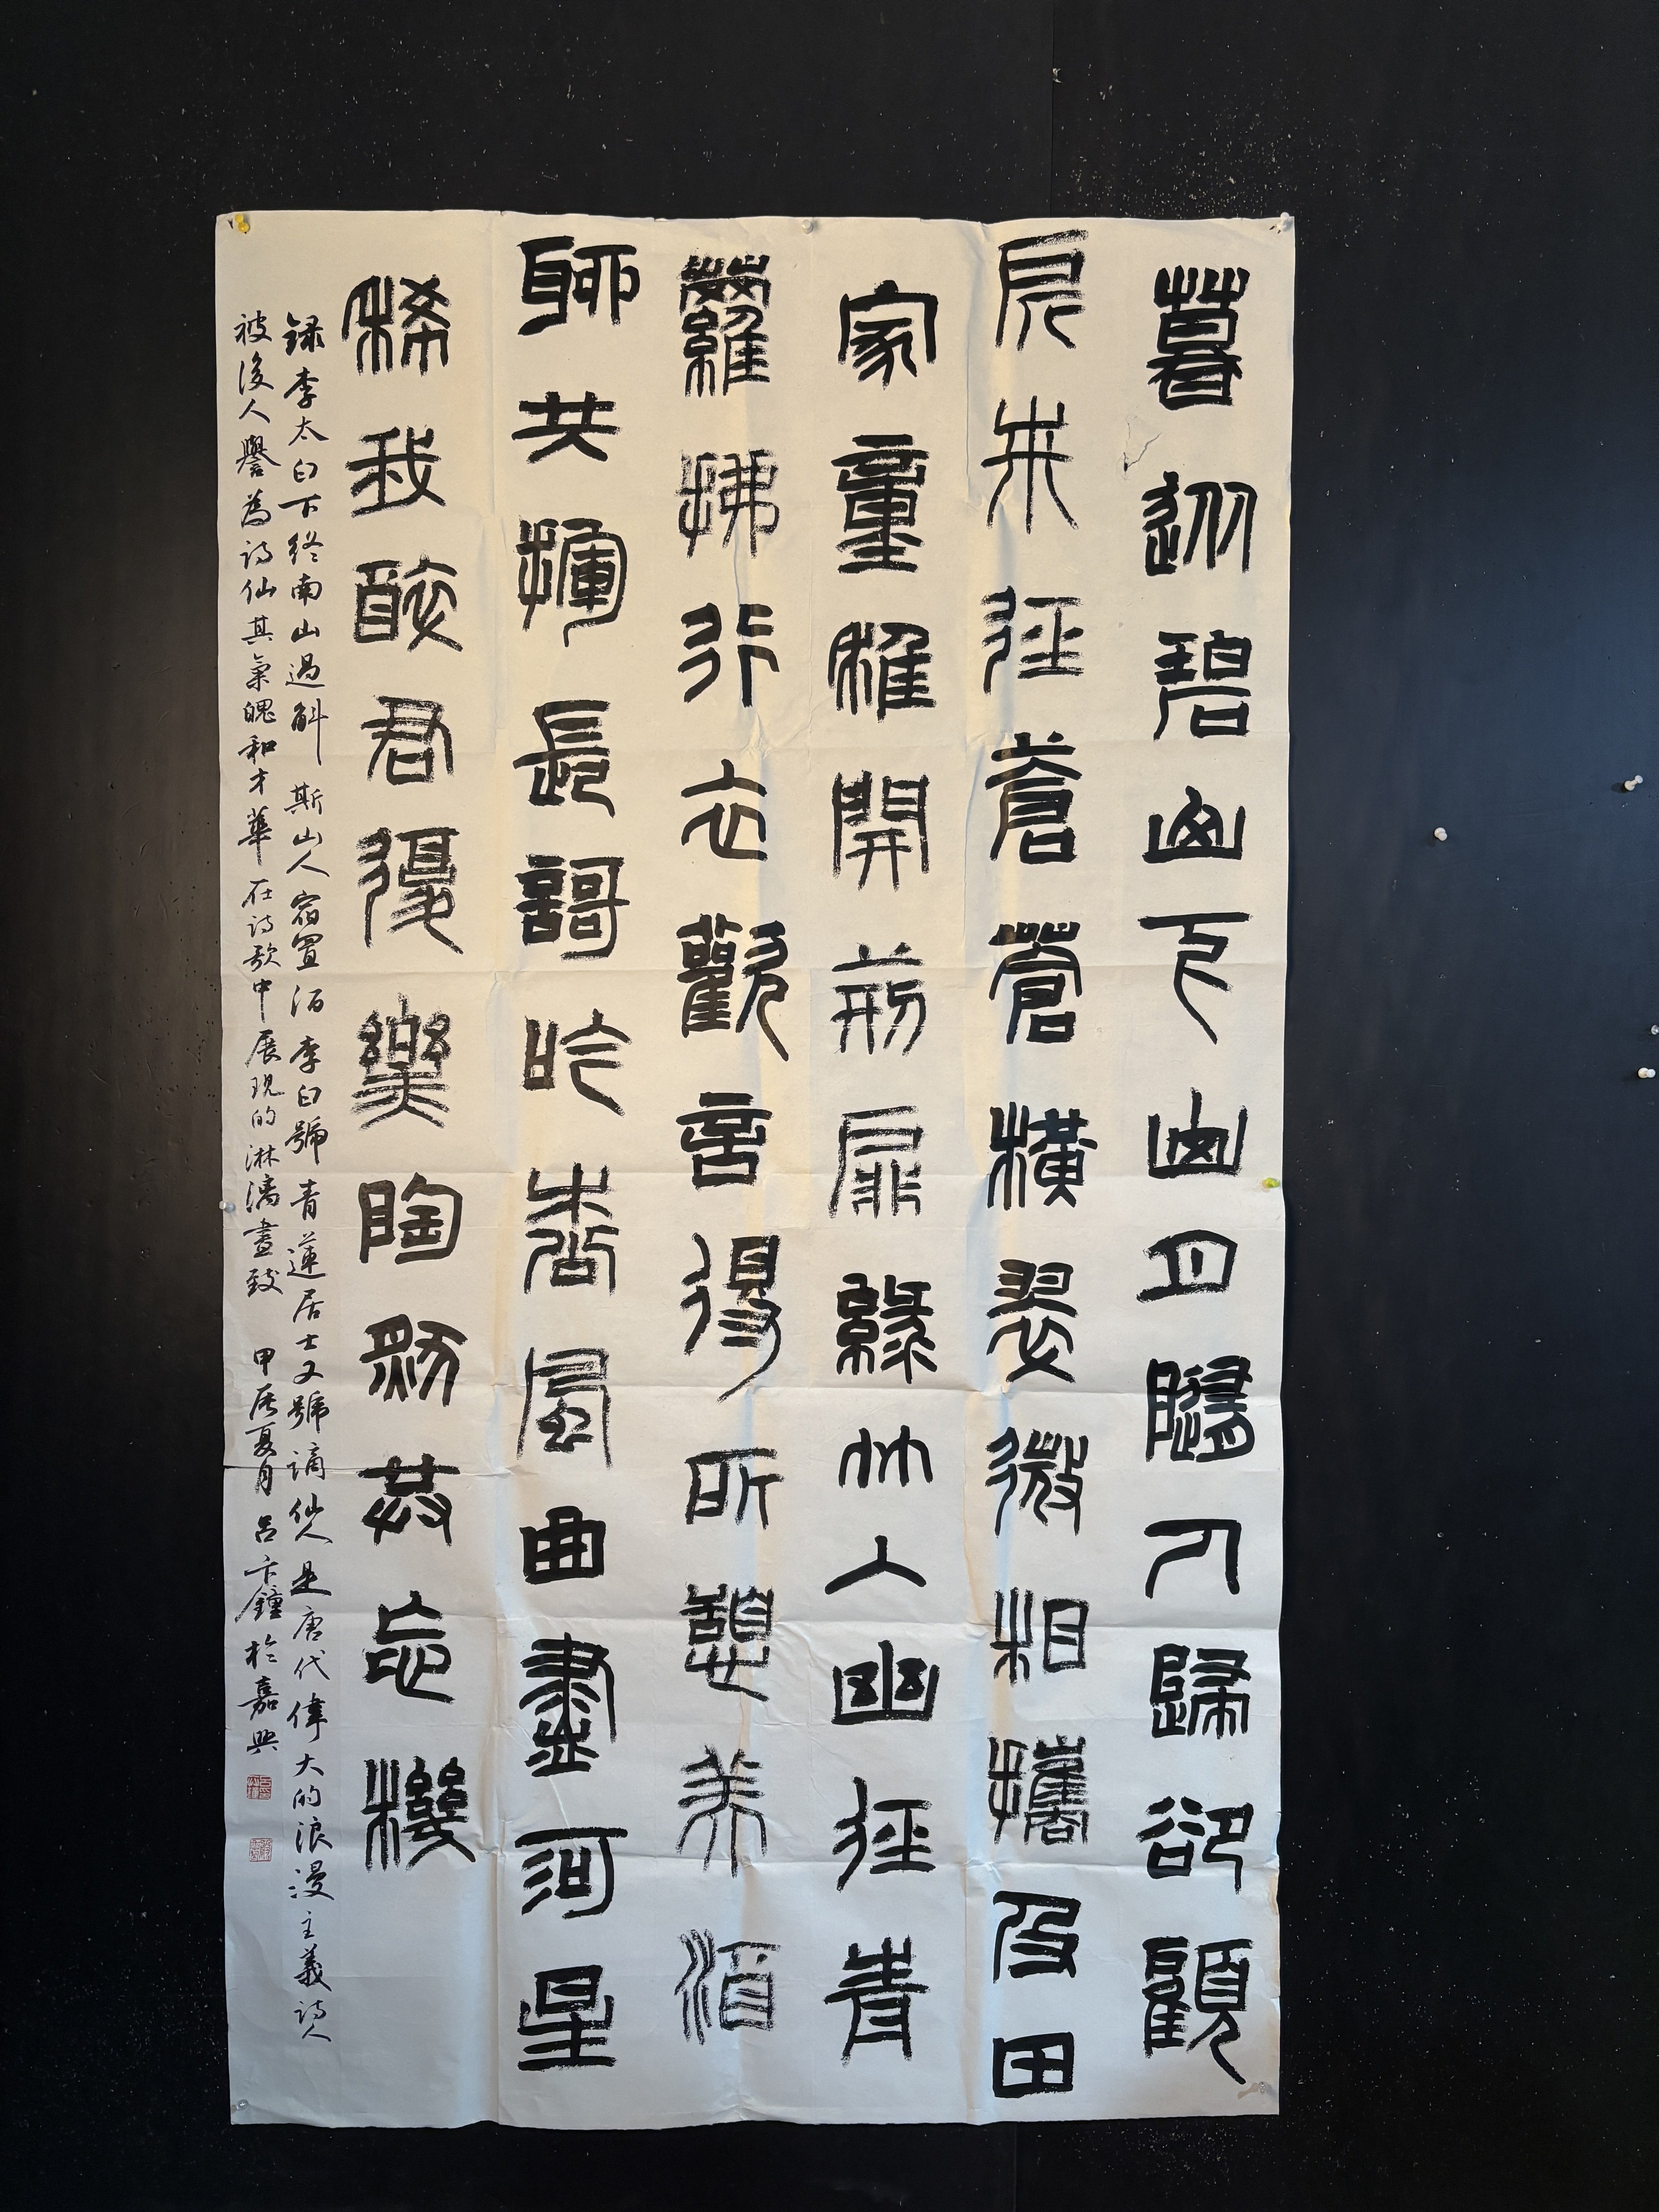 暮從碧山下山月隨人歸卻顧
所來徑蒼蒼橫翠微相攜及田
家童稚開荊扉綠竹入幽徑青
蘿拂行衣歡言得所憩美酒
聊共揮長歌吟松風曲盡河星
稀我醉君復樂陶然共忘機
録李太白下終南山過斛斯山人宿置酒李白號青蓮居士又號謫仙人是唐代偉大的浪漫主義詩人
被後人譽為詩仙其氣魄和才華在詩歌中展現的淋漓盡致 甲辰夏月 呂鐘於嘉興